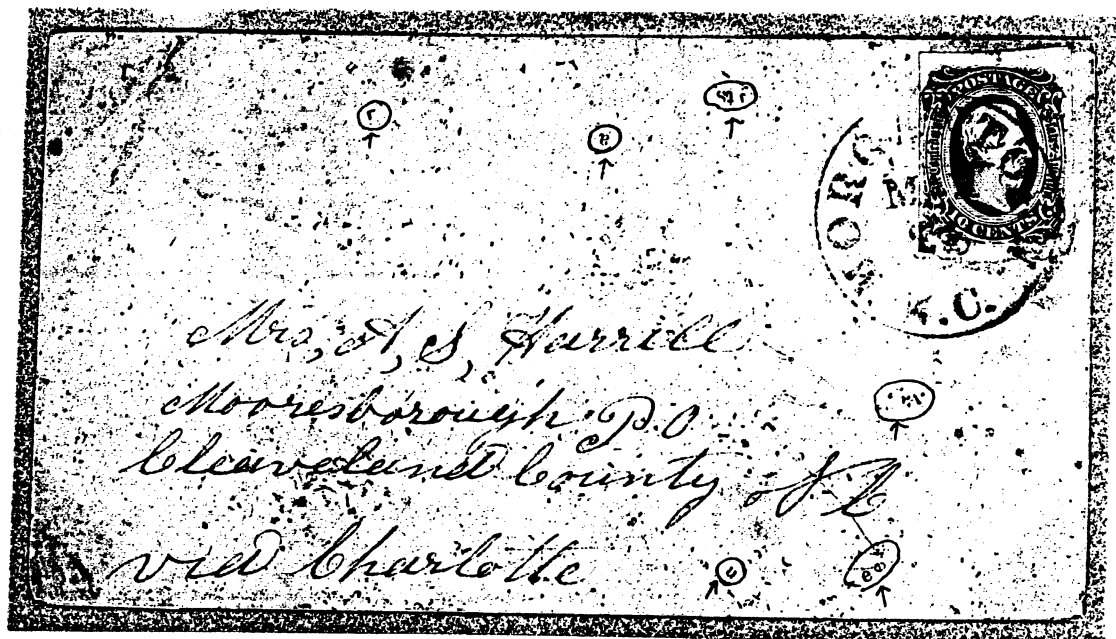 POSTAGE
TEN CENTS
MORG
M
.C.
Mrs, A, S, Harrill
Mooresborough P.O
Cleaveland County N C
via Charlotte